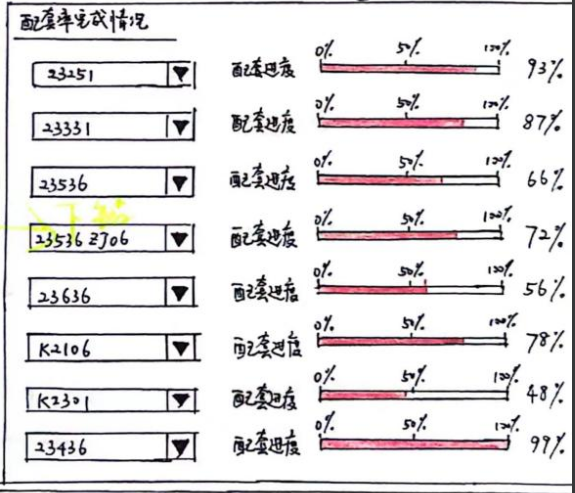 配套率完成情况
23251 配套进度 0% 50% 100% 93%
23331 配套进度 0% 50% 100% 87%
23536 配套进度 0% 50% 100% 66%
下拉
23536 ZJ06 配套进度 0% 50% 100% 72%
23636 配套进度 0% 50% 100% 56%
K2106 配套进度 0% 50% 100% 78%
K2301 配套进度 0% 50% 100% 48%
23436 配套进度 0% 50% 100% 99%